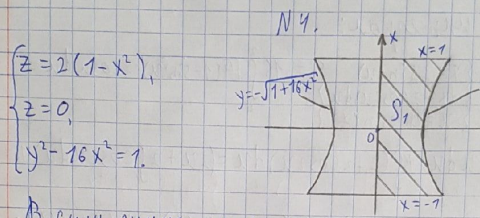 N 4.
z = 2(1 - x²),
z = 0,
y² - 16x² = 1.
x
x=1
y=-√1+16x²
S₁
0
x=-1
В